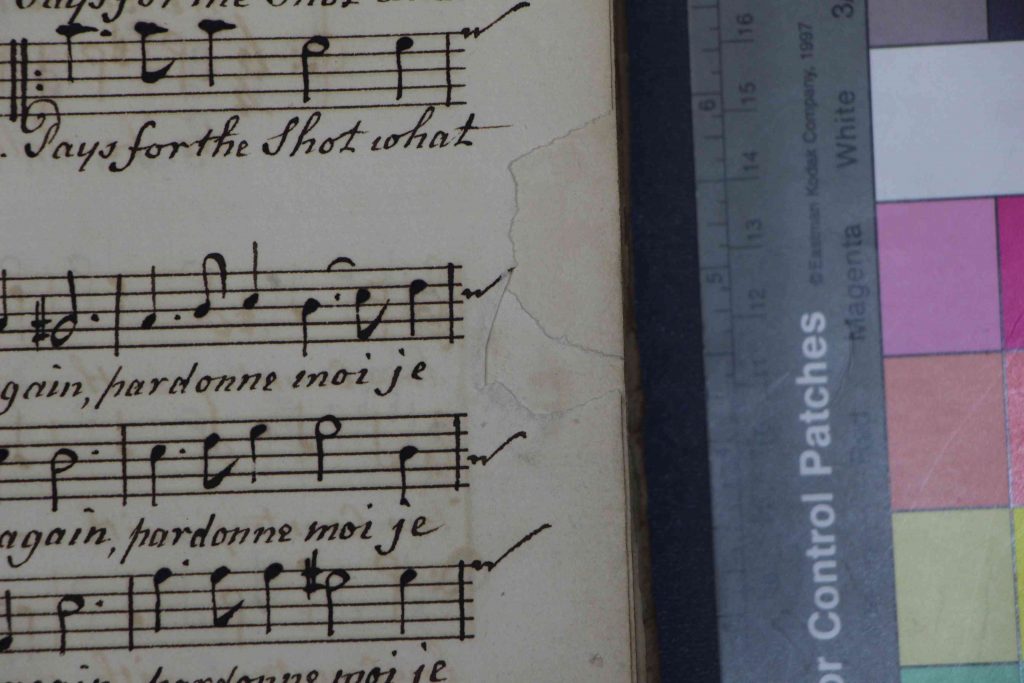 Pays for the Shot what
gain, pardonne moi je
again, pardonne moi je
again, pardonne moi je
16
15
14
13
12
11
6
5
3/
White
Magenta
Red
© Eastman Kodak Company, 1997
or Control Patches